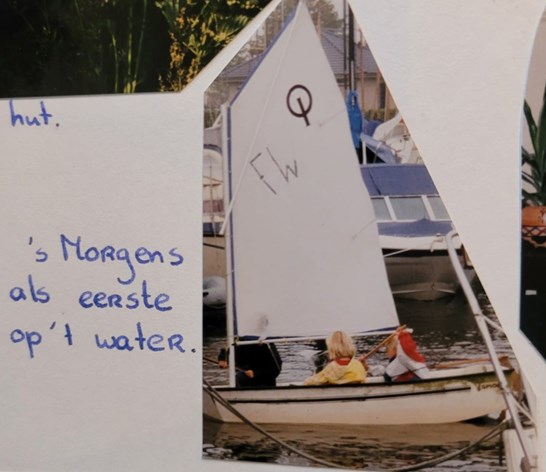 hut.
's Morgens
als eerste
op 't water.
FW